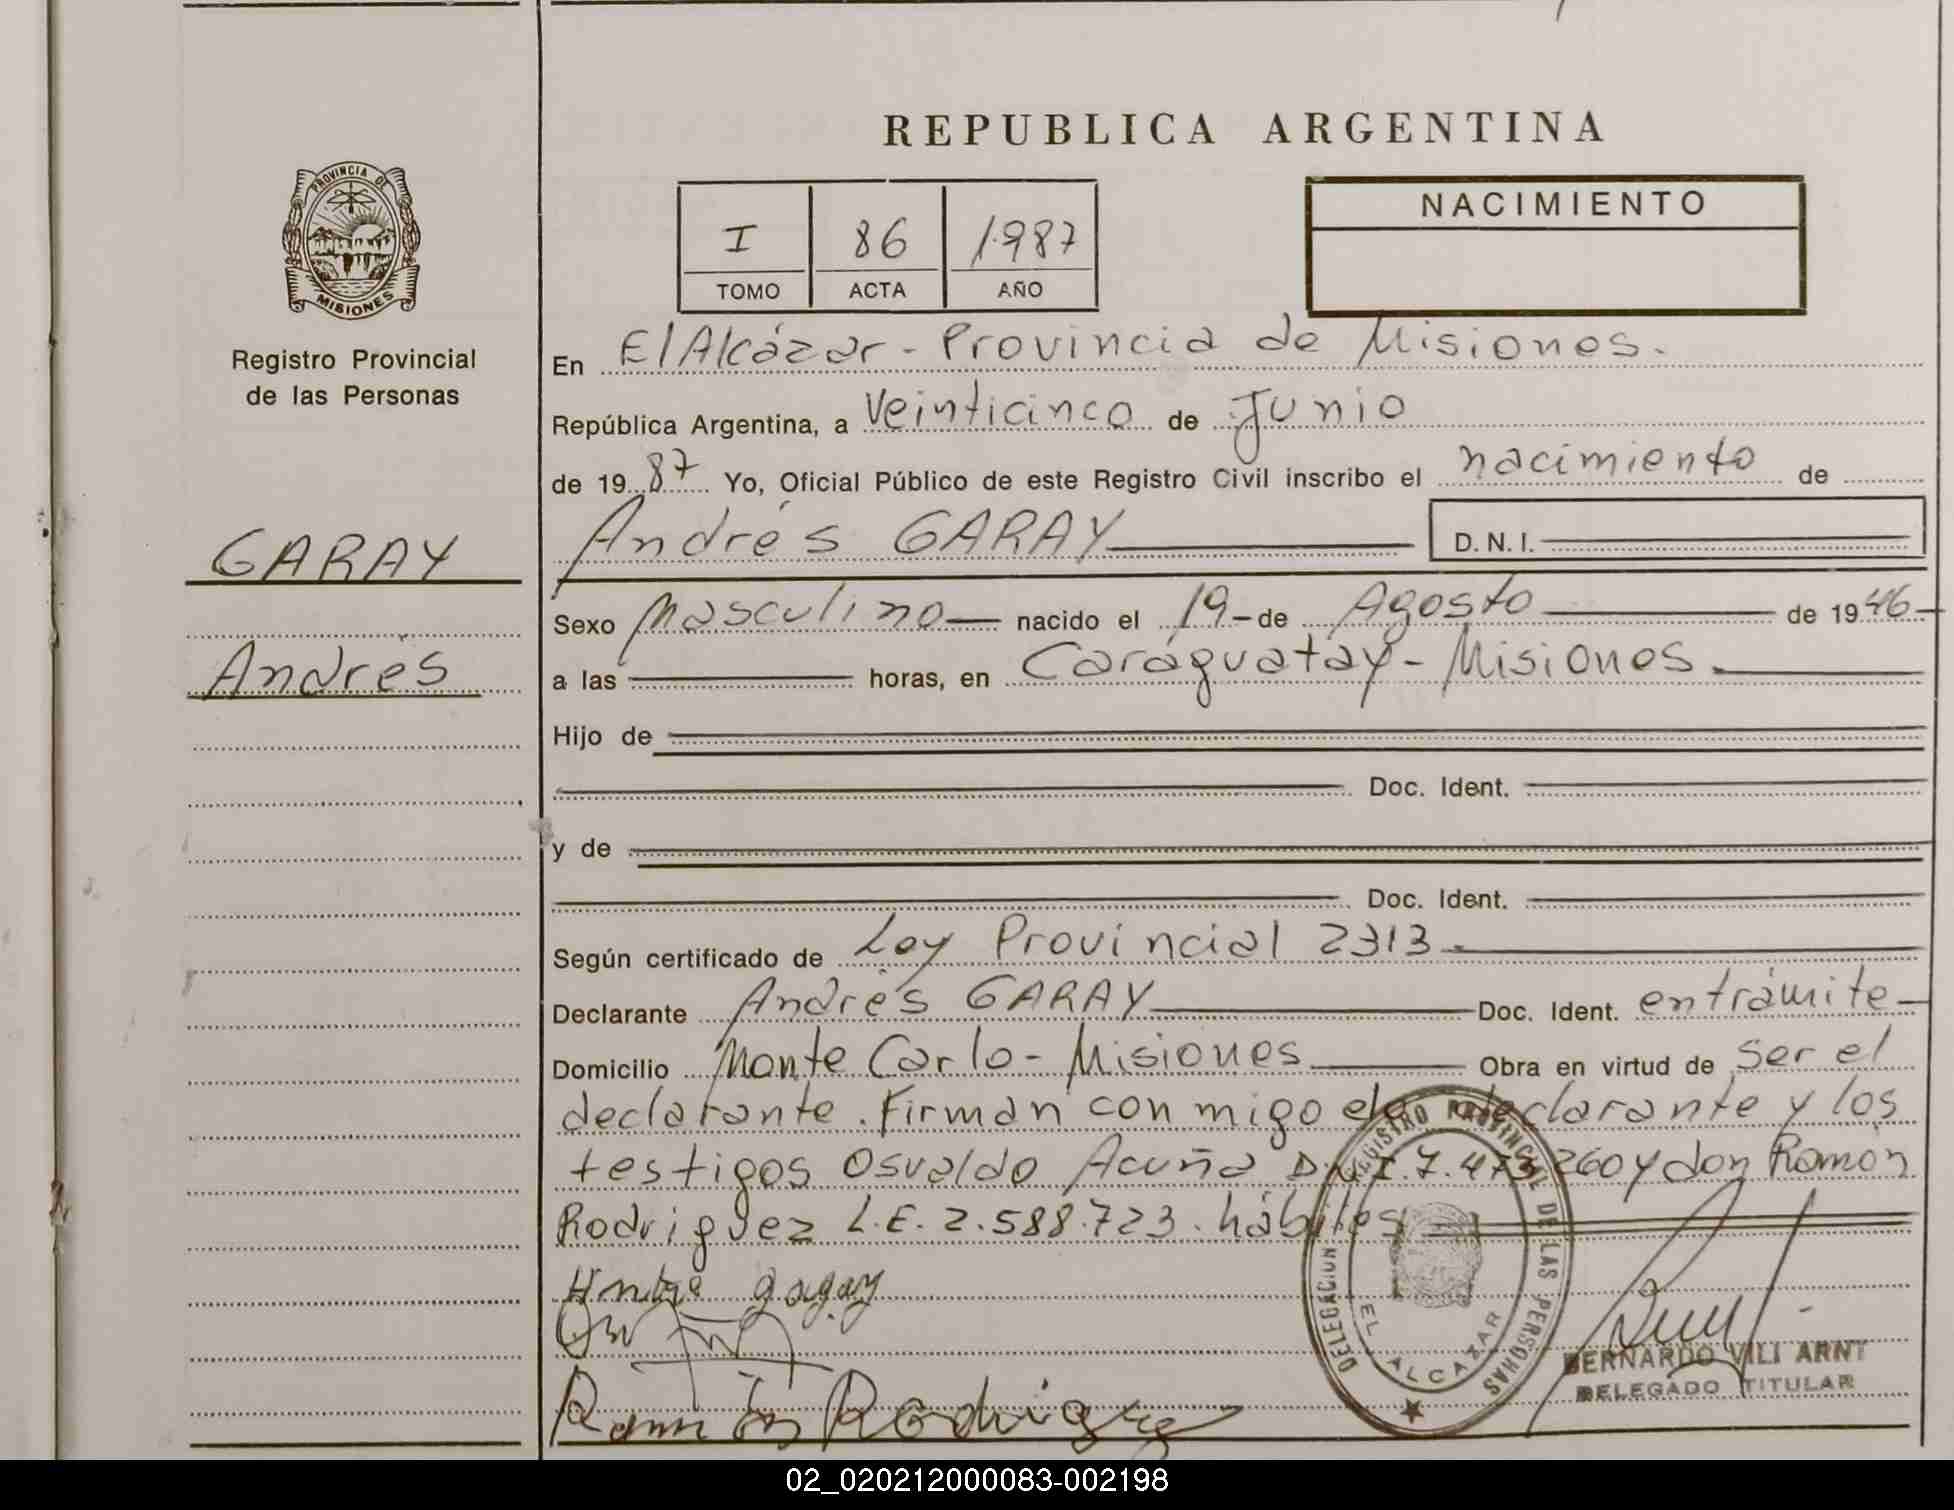 REPUBLICA ARGENTINA
PROVINCIA DE
MISIONES
Registro Provincial
de las Personas
I 86 1987
TOMO ACTA AÑO
NACIMIENTO
En El Alcázar - Provincia de Misiones.
República Argentina, a Veinticinco de Junio
de 1987 Yo, Oficial Público de este Registro Civil inscribo el nacimiento de
GARAY
Andrés GARAY D. N. I.
Sexo Masculino nacido el 19 - de Agosto de 1946
Andrés
a las horas, en Caraguatay - Misiones.
Hijo de
Doc. Ident.
y de
Doc. Ident.
Según certificado de Ley Provincial 2313.
Declarante Andrés GARAY Doc. Ident. en trámite
Domicilio Monte Carlo - Misiones Obra en virtud de ser el
declarante. Firman con migo el declarante y los
testigos Osvaldo Acuña D.N.I. 7.473.260 y don Ramón
Rodriguez L.E. 2.588.723. hábiles
DELEGACION REGISTRO PROVINCIAL DE LAS PERSONAS
EL ALCAZAR
Ramón Rodriguez
BERNARDO VILI ARNT
DELEGADO TITULAR
02_020212000083-002198